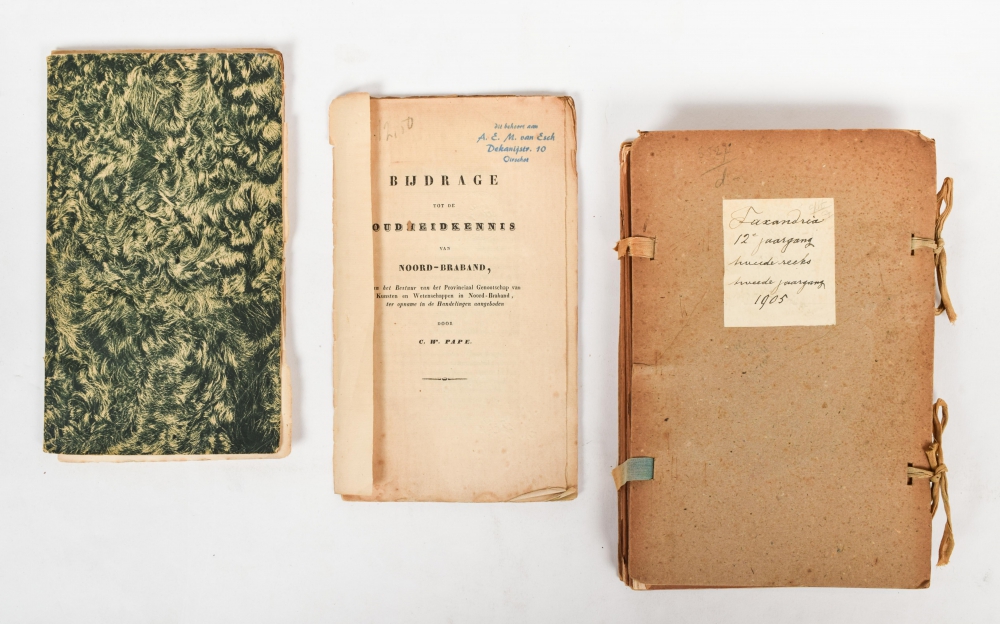 2,50
dit behoort aan
A. E. M. van Esch
Dekanijstr. 10
Oirschot
BIJDRAGE
TOT DE
OUDHEIDKENNIS
VAN
NOORD-BRABAND,
het Bestuur van het Provinciaal Genootschap van
Kunsten en Wetenschappen in Noord-Braband,
ter opname in de Handelingen aangeboden
DOOR
C. W. PAPE.
Taxandria
12e jaargang
tweede reeks
tweede jaargang
1905